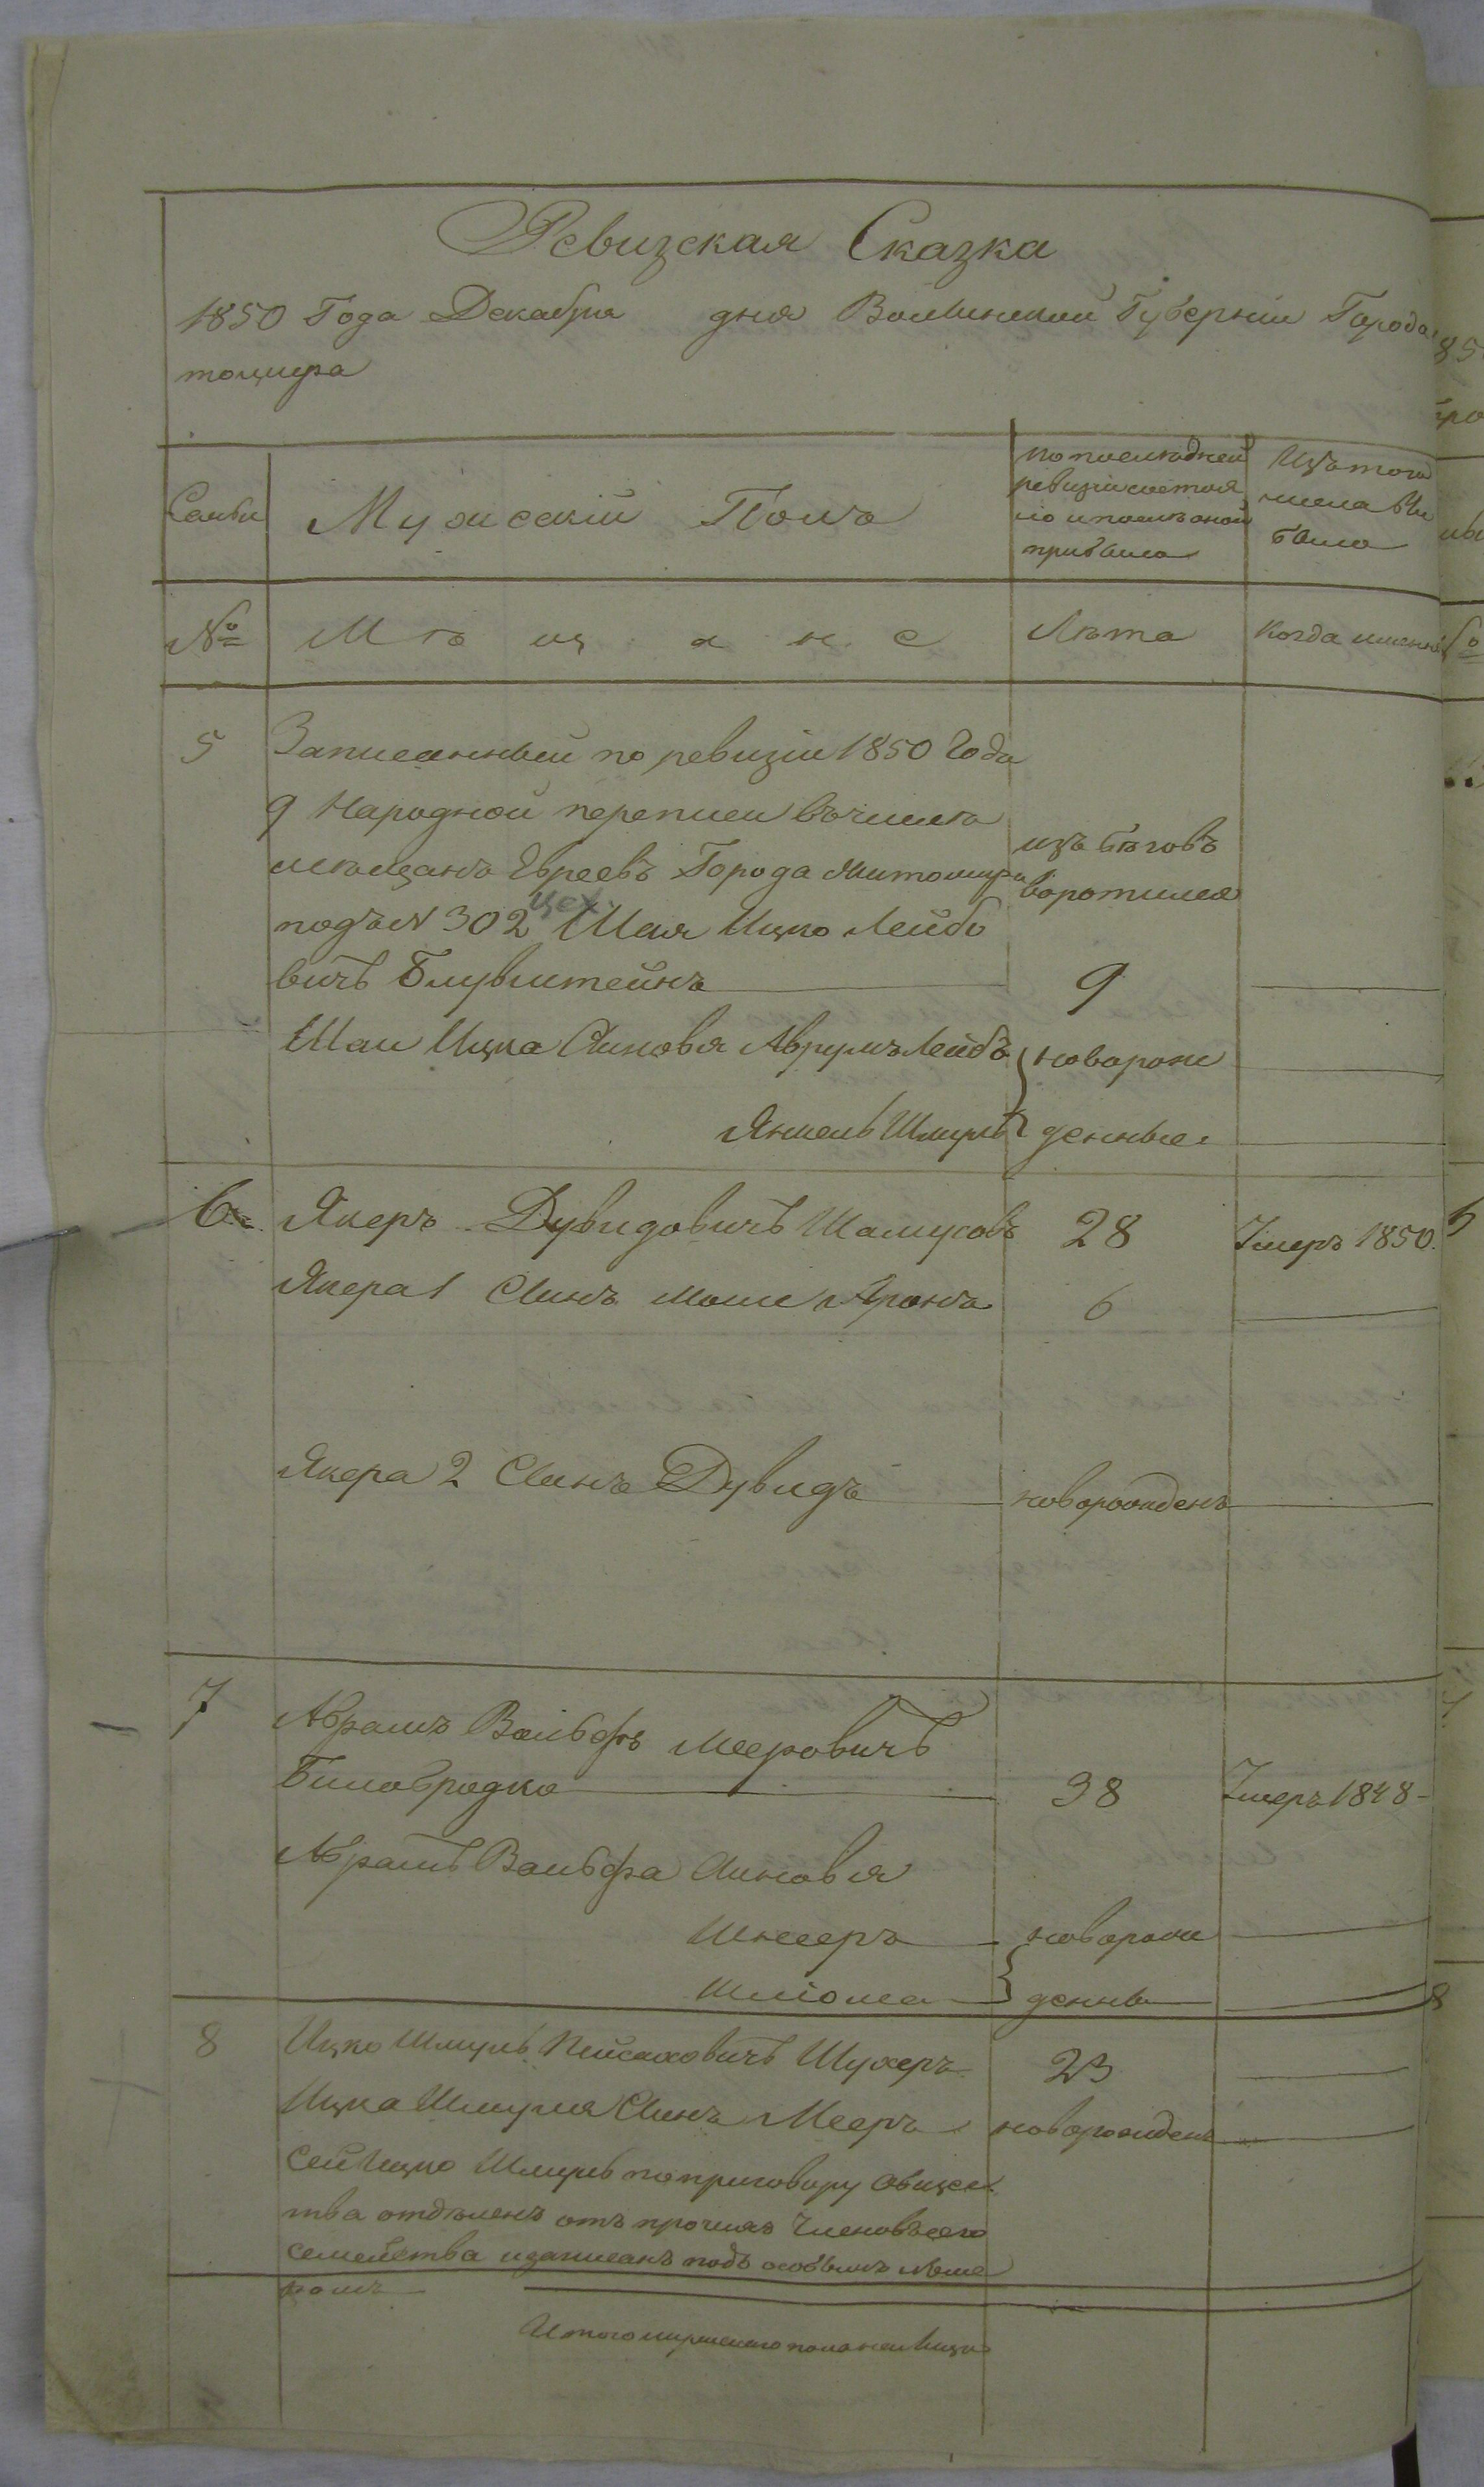 Ревизская Сказка
1850 Года Декабря дня Волынской Губерніи Города
томира
Семьи
Мужескій Полъ
По последней
ревизіи состоя
ло и после оной
прибыло
Изъ того
числа вы
было
№
Мѣщане
Лѣта
Когда именно
5
Записанный по ревизіи 1850 Года
9 Народной переписи въ числѣ
мѣщанъ Евреевъ Города Житомира
изъ бѣговъ
воротился
цех.
подъ N 302 Шая Ицко Лейбо
вичъ Блувштейнъ
9
Шаи Ицка Сыновья Аврумъ Лейбъ
новорож
Янкель Шмуль
денные
6
Якеръ Дувидовичъ Шамусовъ
28
Умеръ 1850.
Якера 1 Сынъ Моше Аронъ
6
Якера 2 Сынъ Дувидъ
новорожденъ
7
Абрамъ Вольфъ Меeровичъ
Билобродко
38
Умеръ 1848
Абрамъ Вольфа Сыновья
Шнеeръ
новорож
Шліома
денны
8
Ицко Шмуль Пейсаховичъ Шухеръ
23
Ицка Шмуля Сынъ Мееръ
новорожденъ
Сей Ицко Шмуль по приговору Общес
тва отдѣленъ отъ прочихъ Членовъ его
семейства и записанъ подъ особымъ номе
ромъ
Итого мужеского пола на лицо